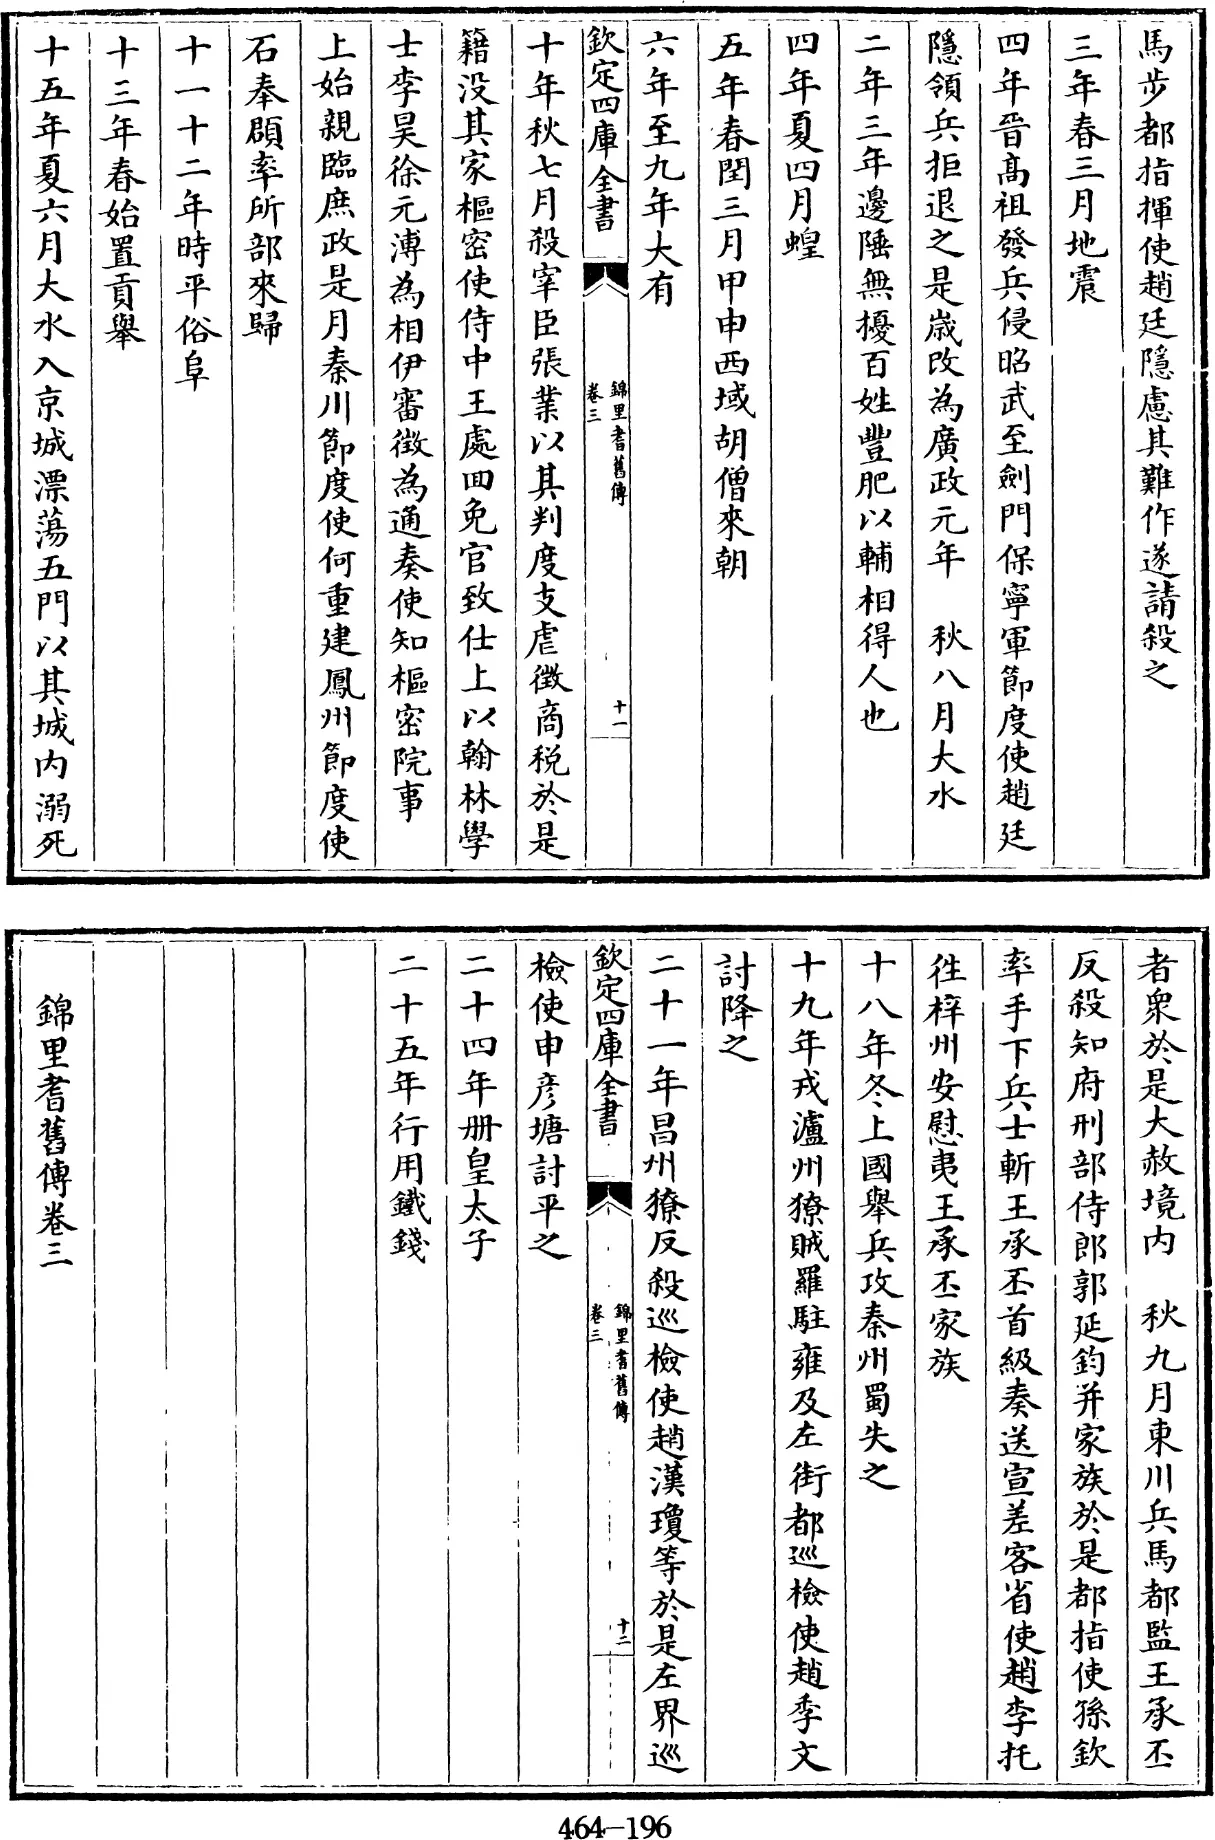 馬步都指揮使趙廷隱慮其難作遂請殺之
三年春三月地震
四年晉髙祖發兵侵昭武至劍門保寧軍節度使趙廷
隱領兵拒退之是嵗改為廣政元年 秋八月大水
二年三年邊陲無擾百姓豐肥以輔相得人也
四年夏四月蝗
五年春閏三月甲申西域胡僧來朝
六年至九年大有
欽定四庫全書
錦里耆舊傳
卷三
十一
十年秋七月殺宰臣張業以其判度支虐徴商税於是
籍没其家樞密使侍中王處回免官致仕上以翰林學
士李昊徐元溥為相伊審徴為通奏使知樞密院事
上始親臨庶政是月秦川節度使何重建鳳州節度使
石奉頵率所部來歸
十一十二年時平俗阜
十三年春始置貢舉
十五年夏六月大水入京城漂蕩五門以其城内溺死
者衆於是大赦境内 秋九月東川兵馬都監王承丕
反殺知府刑部侍郎郭延鈞并家族於是都指使孫欽
率手下兵士斬王承丕首級奏送宣差客省使趙李托
徃梓州安慰夷王承丕家族
十八年冬上國舉兵攻秦州蜀失之
十九年戎瀘州獠賊羅駐雍及左街都巡檢使趙季文
討降之
二十一年昌州獠反殺巡檢使趙漢瓊等於是左界巡
欽定四庫全書
錦里耆舊傳
卷三
十二
檢使申彦塘討平之
二十四年册皇太子
二十五年行用鐵錢
錦里耆舊傳卷三
464-196